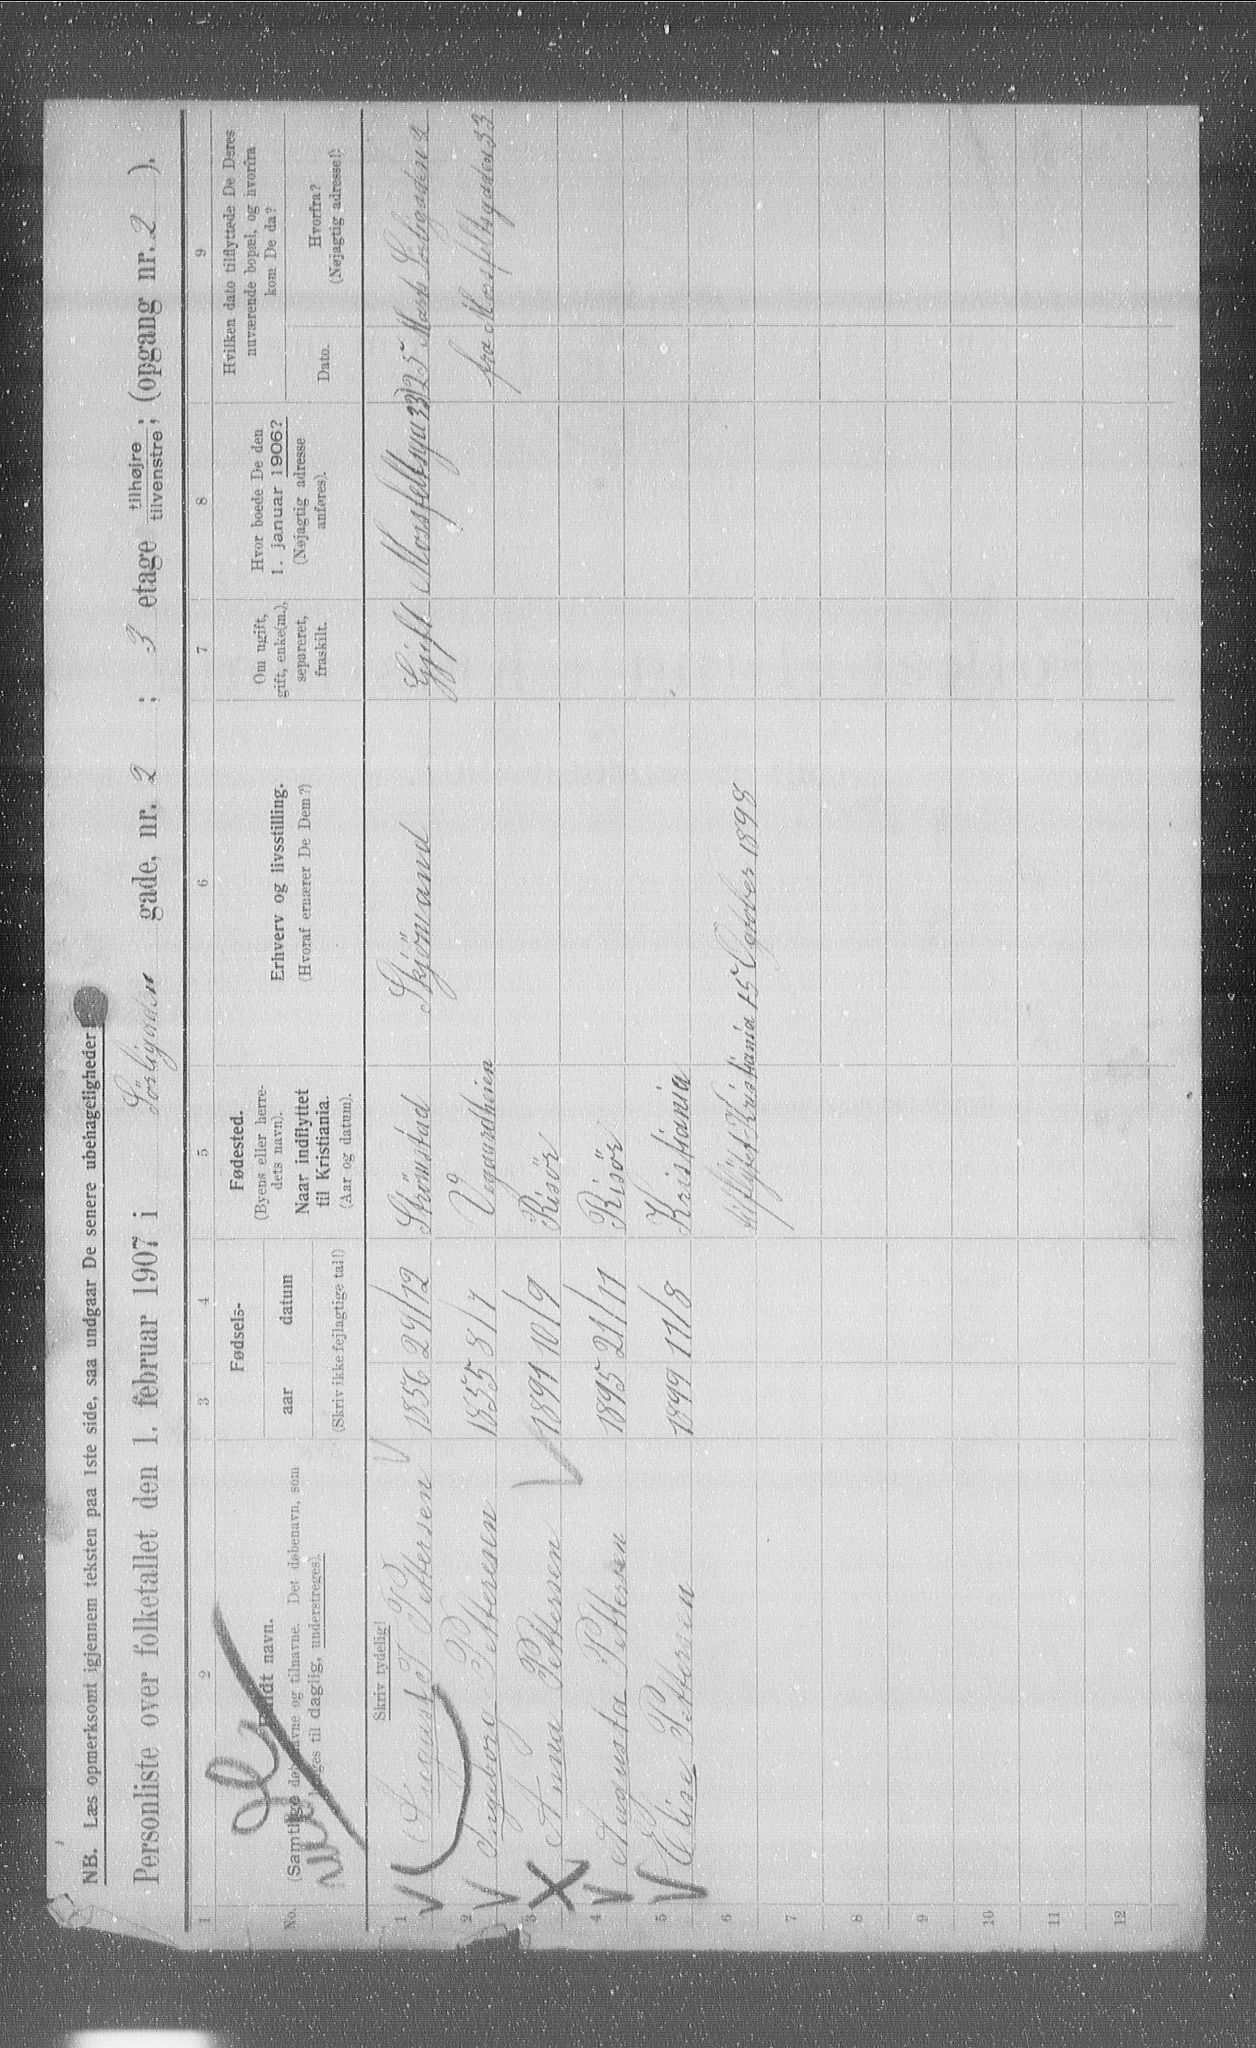 NB. Læs opmerksomt igjennem teksten paa 1ste side, saa undgaar De senere ubehageligheder
Personliste over folketallet den 1. februar 1907 i Sörligaden gade, nr. 2 ; 3 etage tilhøjre / tilvenstre ; (opgang nr. 2 ).
1 2 3 4 5 6 7 8 9
No.
Fuldt navn.
(Samtlige døbenavne og tilnavne. Det døbenavn, som bruges til daglig, understreges).
Fødsels-
aar datum
(Skriv ikke fejlagtige tal!)
Fødested.
(Byens eller herredets navn).
Naar indflyttet til Kristiania.
(Aar og datum).
Erhverv og livsstilling.
(Hvoraf ernærer De Dem?)
Om ugift, gift, enke(m.), separeret, fraskilt.
Hvor boede De den 1. januar 1906?
(Nøjagtig adresse anføres).
Hvilken dato tilflyttede De Deres nuværende bopæl, og hvorfra kom De da?
Dato.
Hvorfra?
(Nøjagtig adresse!)
Skriv tydelig!
1 August J Pettersen 1856 29/12 Strömstad Skjömand Gift 33) 25 Mars Sörligaden 2
2 Ingeborg Petteresen 1855 8/7 Vegaardheien fra Morsfeltsgaden 33
3 Anna Pettersen 1891 10/9 Risör
4 Augusta Pettersen 1895 21/11 Risör
5 Elise Pettersen 1899 17/8 Kristiania
6 Kristiania 15 October 1898
7
8
9
10
11
12